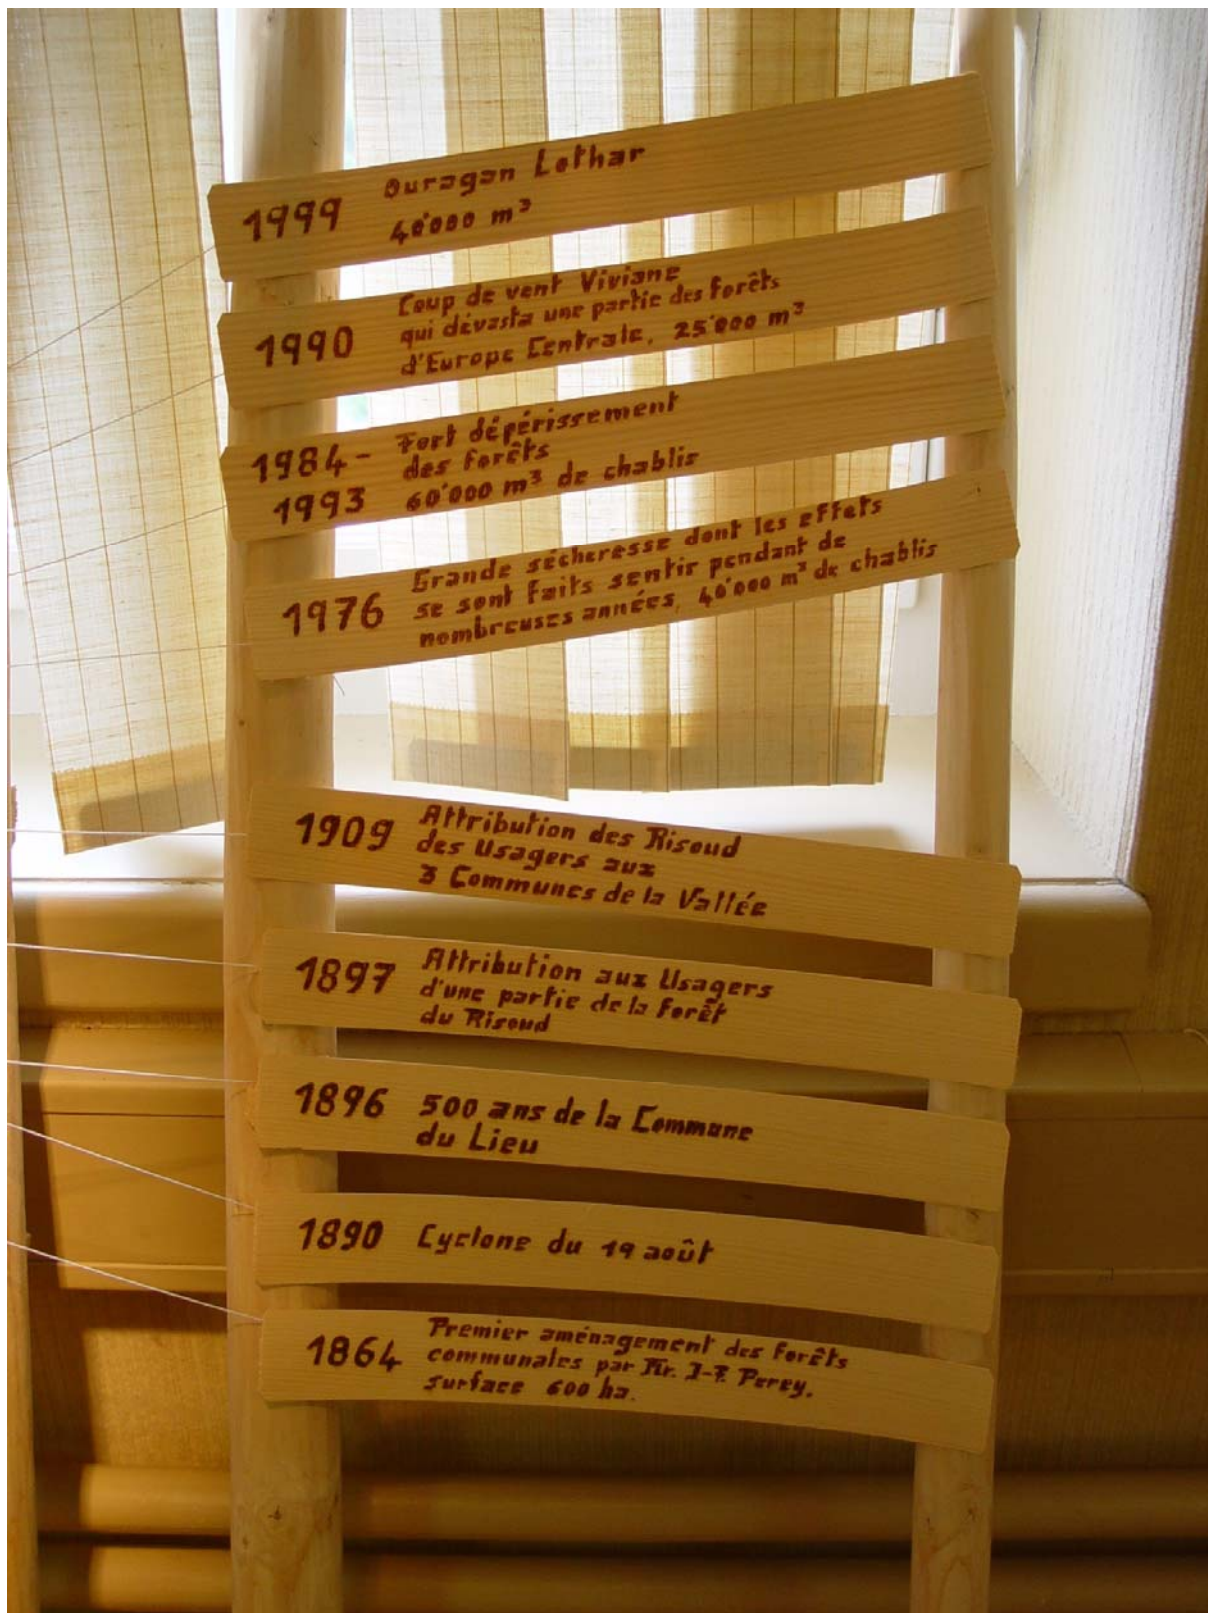 1999 Ouragan Lothar
40'000 m³
1990 Coup de vent Viviane
qui dévasta une partie des forêts
d'Europe Centrale, 25'000 m³
1984- Fort dépérissement
des forêts
1993 60'000 m³ de chablis
1976 Grande sécheresse dont les effets
se sont faits sentir pendant de
nombreuses années, 40'000 m³ de chablis
1909 Attribution des Risoud
des Usagers aux
3 Communes de la Vallée
1897 Attribution aux Usagers
d'une partie de la forêt
du Risoud
1896 500 ans de la Commune
du Lieu
1890 Cyclone du 19 août
1864 Premier aménagement des forêts
communales par Mr. J-F. Perey.
surface 600 ha.